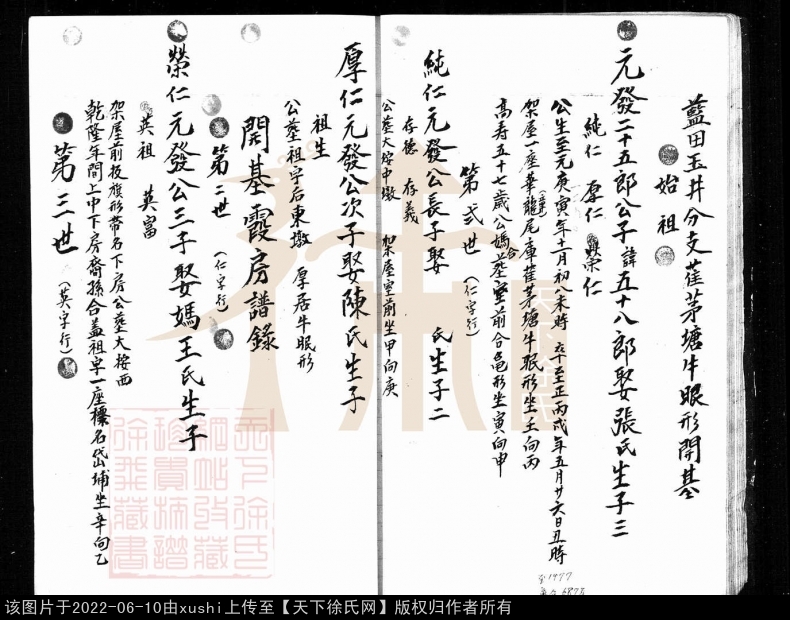 藍田玉井分支萑茅塘牛眼形開基
始祖
元發二十五郎公子諱五十八郎娶張氏生子三
純仁 厚仁 榮仁
公生至元庚寅年十一月初八未時 卒至正丙戌年五月廿六日丑時
架屋一座華龍尾庫萑茅塘牛眼形坐壬向丙
高寿五十七歲公媽合墓室前合黽形坐寅向申
第弍世 (仁字行)
純仁元發公長子娶 氏生子二
存德 存義
公墓大按中墩 架屋室前坐甲向庚
厚仁元發公次子娶陳氏生子
祖生
公墓祖宇后東墩 厚居牛眼形
開基霞房譜錄
第二世 (仁字行)
榮仁元發公三子娶媽王氏生子
英祖 英富
架屋前板旗形帶名下房公墓大按西
乾隆年間上中下房裔孫合盖祖宇一座標名岱埔坐辛向乙
第三世 (英字行)
天下徐氏
網站收藏
珍貴族譜
徐飛藏書
该图片于2022-06-10由xushi上传至【天下徐氏网】版权归作者所有